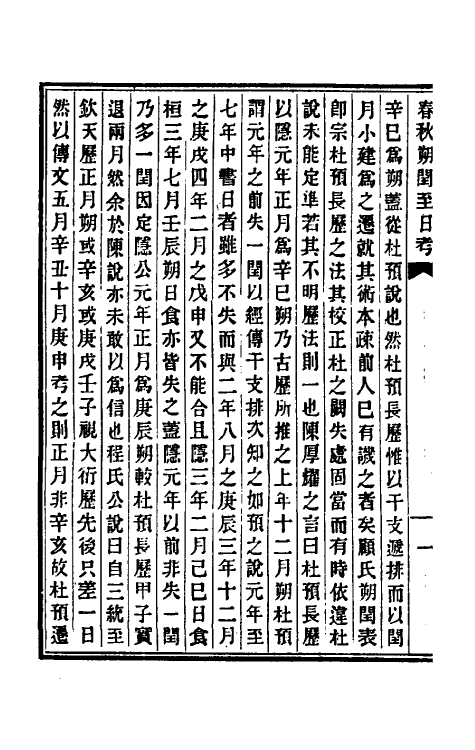 春秋朔閏至日考
一
辛巳爲朔蓋從杜預說也然杜預長歷惟以干支遞排而以閏
月小建爲之遷就其術本疎前人已有議之者矣顧氏朔閏表
卽宗杜預長歷之法其校正杜之闕失處固當而有時依違杜
說未能定準若其不明歷法則一也陳厚耀之言曰杜預長歷
以隱元年正月爲辛巳朔乃古歷所推之上年十二月朔杜預
謂元年之前失一閏以經傳干支排次知之如預之說元年至
七年中書日者雖多不失而與二年八月之庚辰三年十二月
之庚戌四年二月之戊申又不能合且隱三年二月己巳日食
桓三年七月壬辰朔日食亦皆失之蓋隱元年以前非失一閏
乃多一閏因定隱公元年正月爲庚辰朔較杜預長歷甲子實
退兩月然余於陳說亦未敢以爲信也程氏公說曰自三統至
欽天歷正月朔或辛亥或庚戌壬子視大衍歷先後只差一日
然以傳文五月辛丑十月庚申考之則正月非辛亥故杜預遷